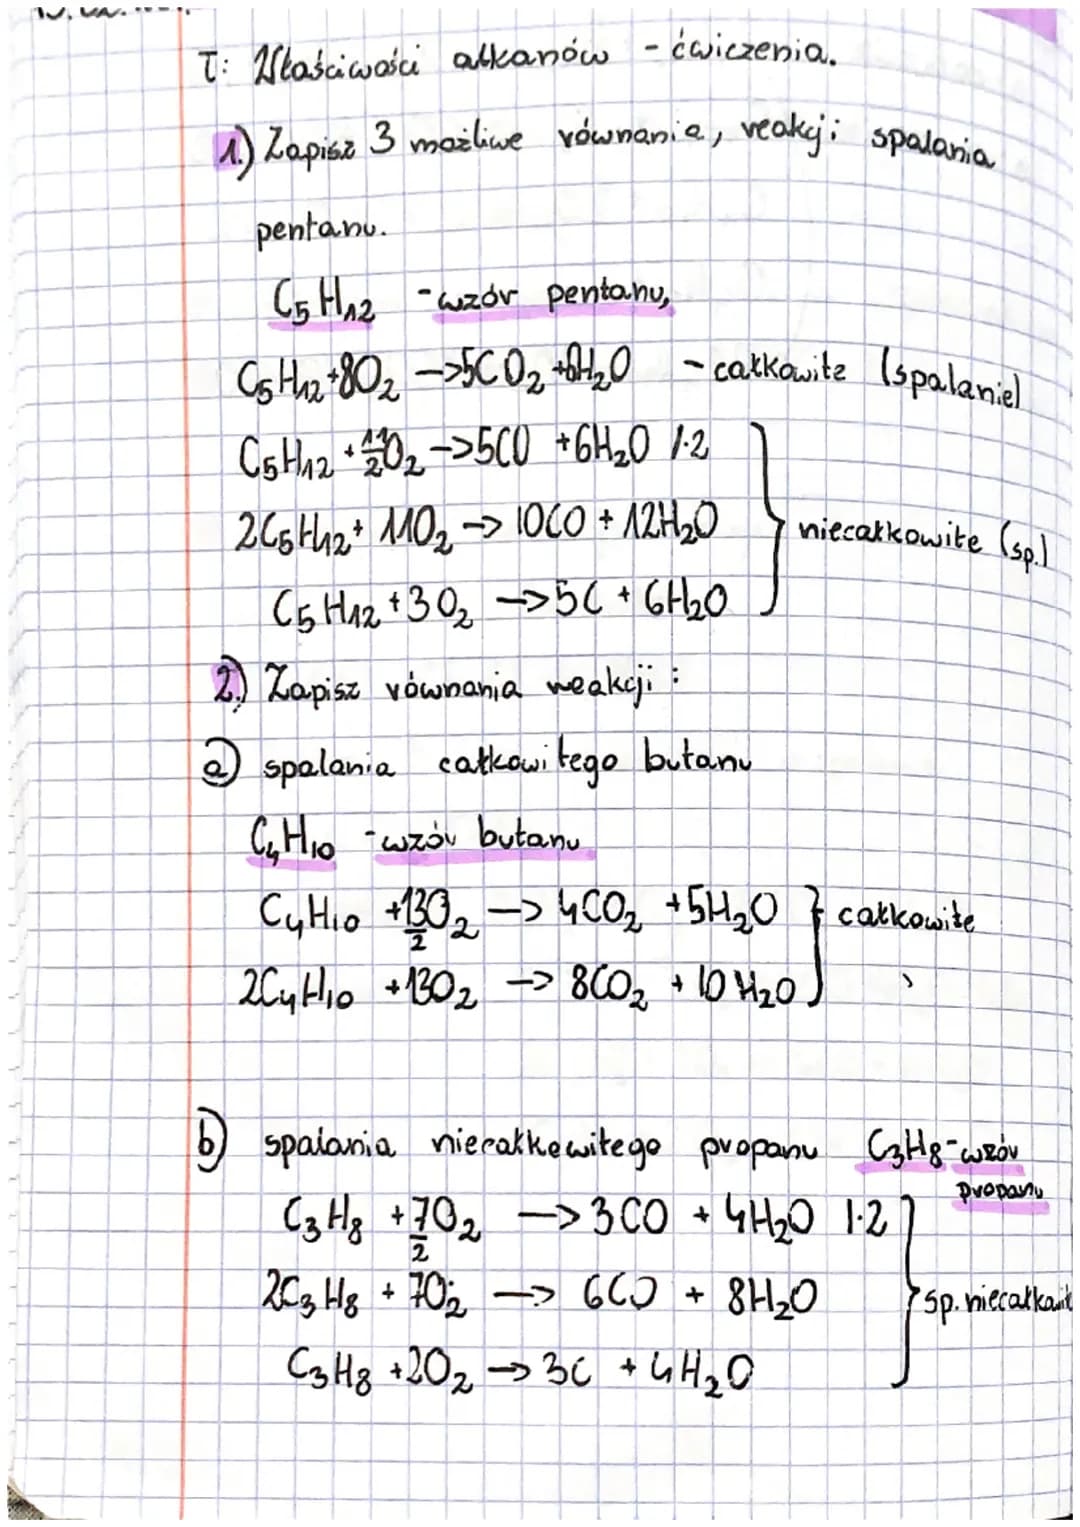 T: Właściwości alkanów - ćwiczenia.
1.) Zapisz 3 możliwe równania, reakcji spalania
pentanu.
C₅H₁₂ - wzór pentanu,
C₅H₁₂ + 8O₂ -> 5CO₂ + 6H₂O - całkowite (spalanie)
C₅H₁₂ + 11/2 O₂ -> 5CO + 6H₂O /·2
2C₅H₁₂ + 11O₂ -> 10CO + 12H₂O
niecałkowite (sp.)
C₅H₁₂ + 3O₂ -> 5C + 6H₂O
2.) Zapisz równania reakcji:
a) spalania całkowitego butanu
C₄H₁₀ - wzór butanu
C₄H₁₀ + 13/2 O₂ -> 4CO₂ + 5H₂O } całkowite
2C₄H₁₀ + 13O₂ -> 8CO₂ + 10H₂O
b) spalania niecałkowitego propanu C₃H₈ - wzór
propanu
C₃H₈ + 7/2 O₂ -> 3CO + 4H₂O /·2
2C₃H₈ + 7O₂ -> 6CO + 8H₂O
sp. niecałkowit
C₃H₈ + 2O₂ -> 3C + 4H₂O